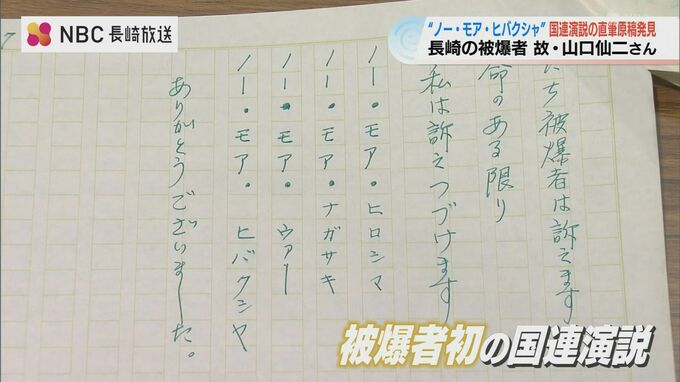 NBC 長崎放送
"ノー・モア・ヒバクシャ" 国連演説の直筆原稿発見
長崎の被爆者 故・山口仙二さん
7
ち被爆者は訴えます
命のある限り
私は訴えつづけます
ノー・モア・ヒロシマ
ノー・モア・ナガサキ
ノー・モア・ウァー
ノー・モア・ヒバクシャ
ありがとうございました。
被爆者初の国連演説